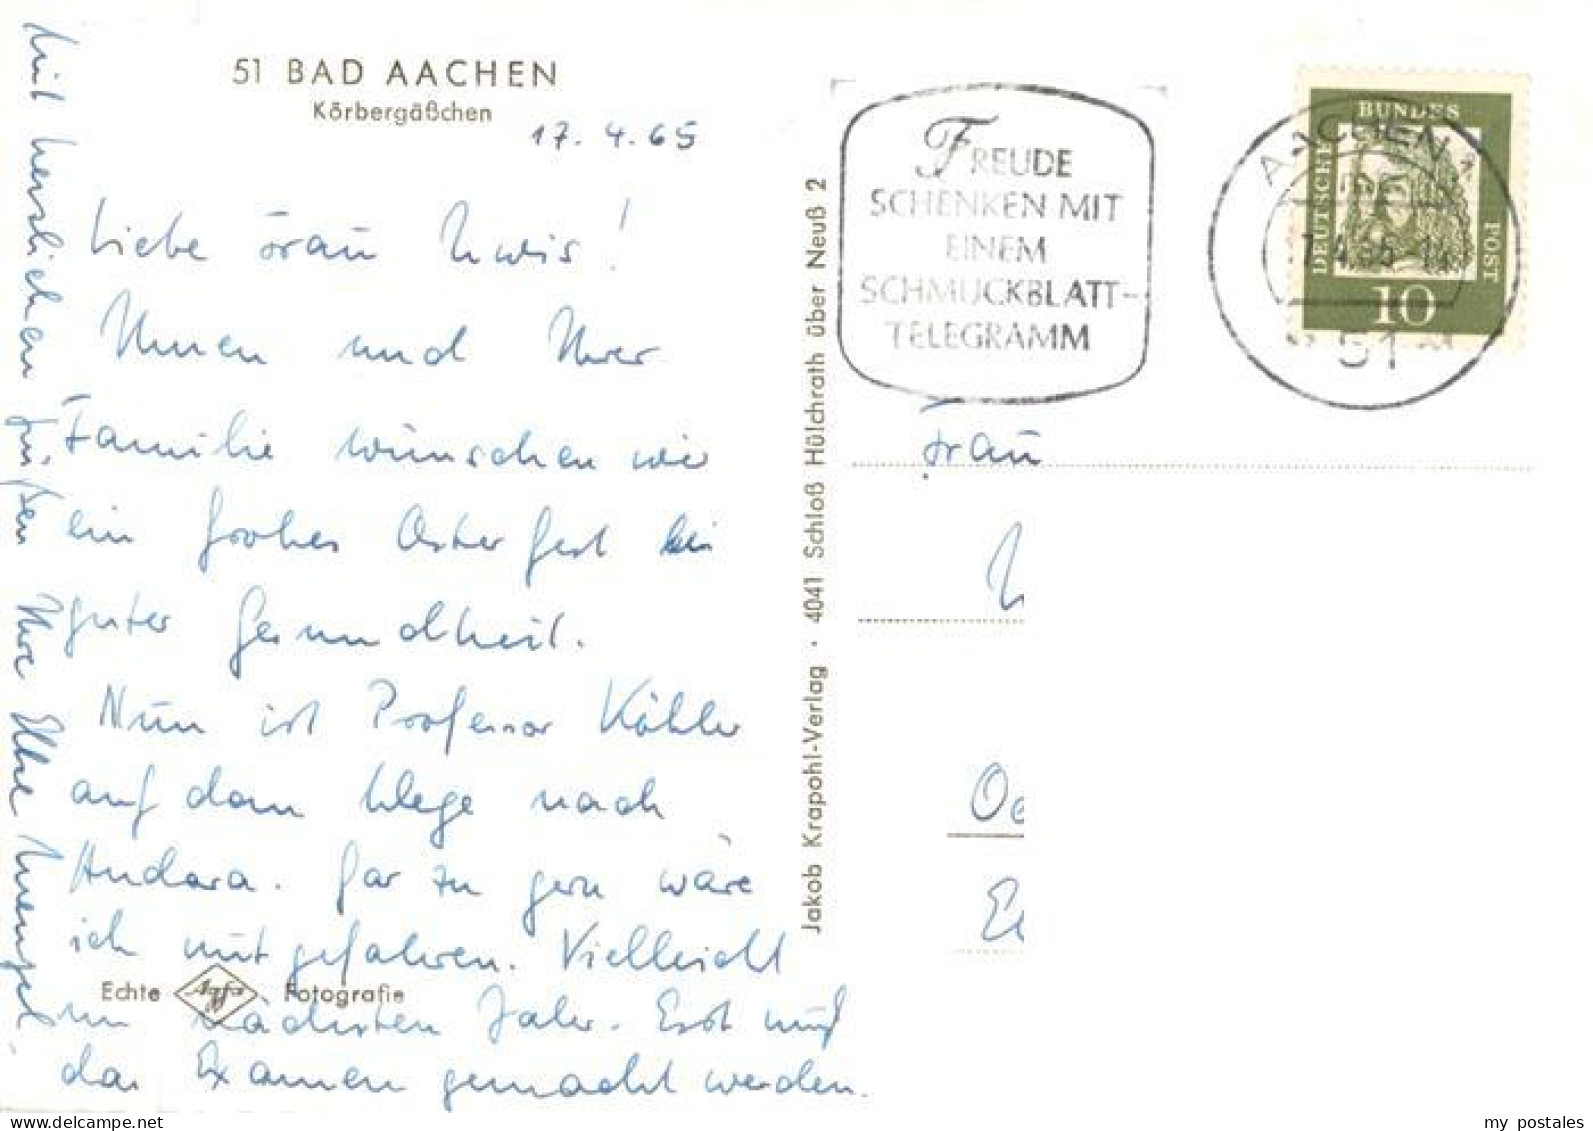 51 BAD AACHEN
Körbergäßchen
17. 4. 65
Liebe Frau
Ihnen und Ihrer
Familie wünschen wir
ein frohes Osterfest bei
guter Gesundheit.
Nun ist Professor Köhler
auf dem Wege nach
Ankara. Gar zu gern wäre
ich mitgefahren. Vielleicht
im nächsten Jahr. Erst muß
das Examen gemacht werden.
Mit herzlichen Grüßen
Ihre Elke
Echte Agfa Fotografie
Jakob Krapohl-Verlag · 4041 Schloß Hülchrath über Neuß 2
FREUDE
SCHENKEN MIT
EINEM
SCHMUCKBLATT-
TELEGRAMM
AACHEN
51
DEUTSCHE
BUNDES
POST
10
Frau
my postales
www.delcampe.net